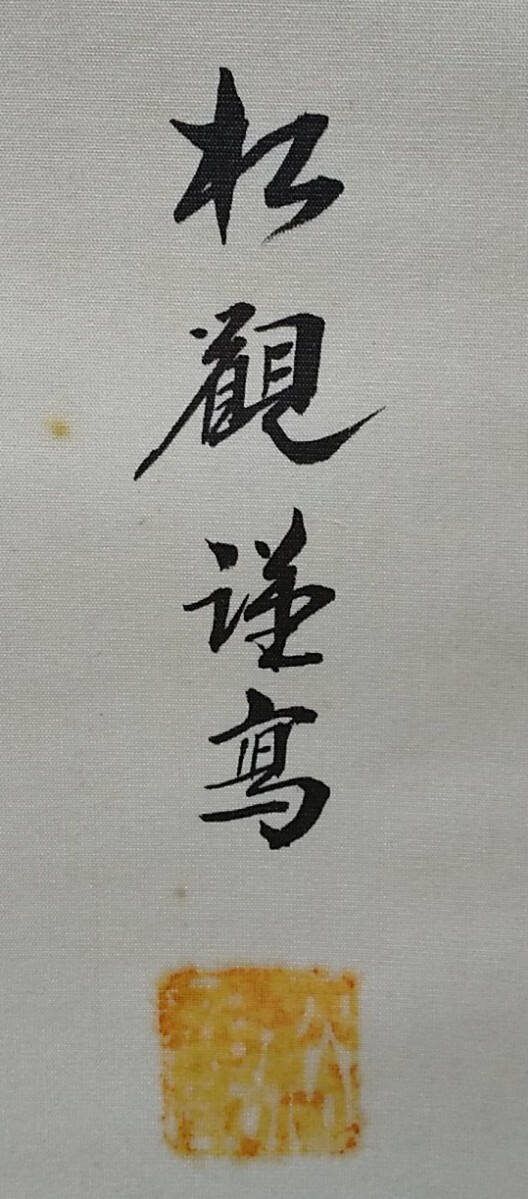 松觀謹寫